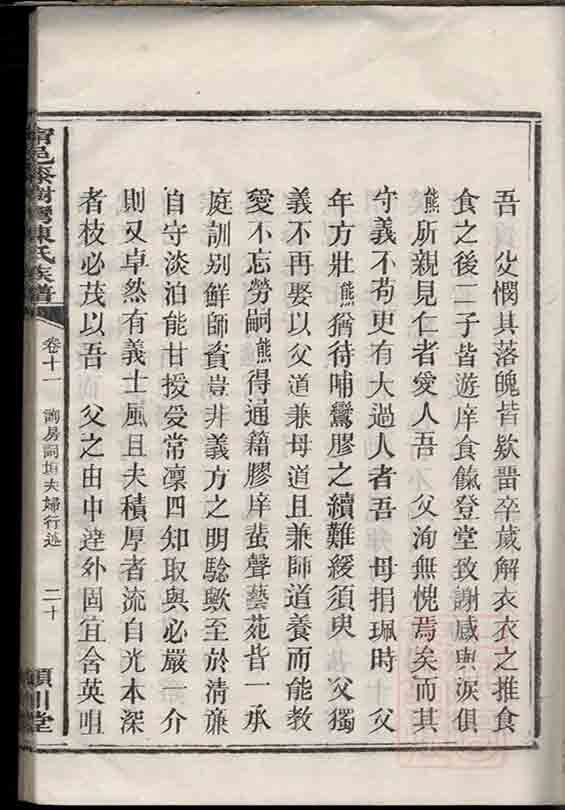 吾　父憫其落魄皆欵畱卒歲解衣衣之推食
食之後二子皆遊庠食餼登堂致謝感與淚俱
熊所親見仁者愛人吾　父洵無愧焉矣而其
守義不苟更有大過人者吾　母捐珮時　父
年方壯熊猶待哺鸞膠之續難緩須臾　父獨
義不再娶以父道兼母道且兼師道養而能教
愛不忘勞嗣熊得通籍膠庠蜚聲藝苑皆一承
庭訓別鮮師資豈非義方之明驗歟至於清亷
自守淡泊能甘授受常凜四知取與必嚴一介
則又卓然有義士風且夫積厚者流自光本深
者枝必茂以吾　父之由中達外固宜含英咀
邑桼樹灣陳氏族譜
卷十一
詞垣夫婦行述
二十
潁川堂